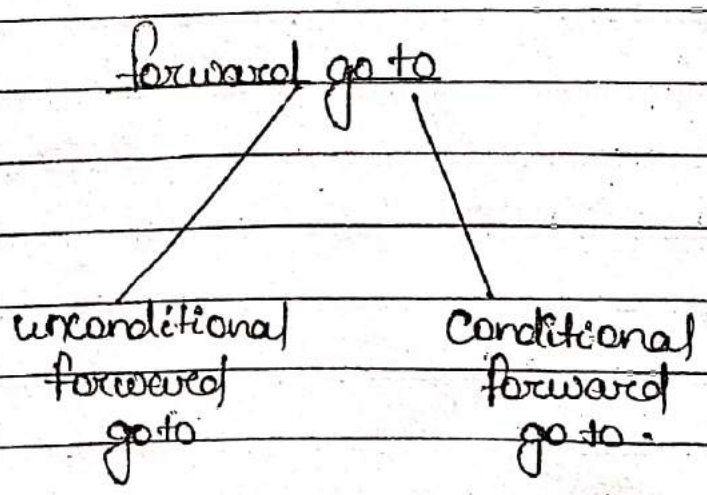 forward go to
unconditional
forward
go to
Conditional
forward
go to.